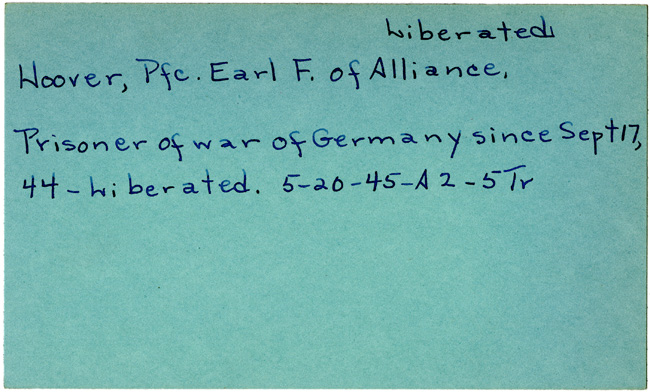 Liberated
Hoover, Pfc. Earl F. of Alliance,
Prisoner of war of Germany since Sept 17,
44 - Liberated. 5-20-45-A2-5 Tr